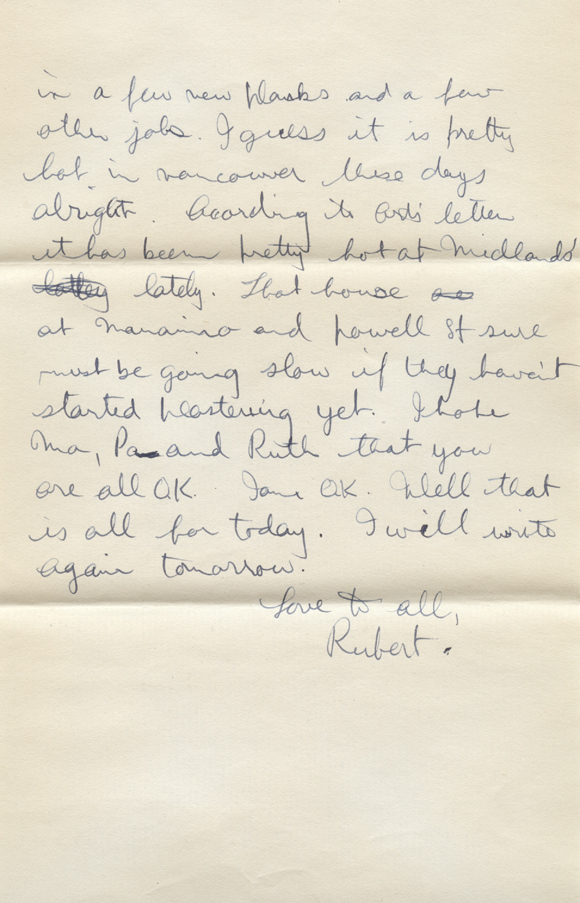 in a few new planks and a few
other jobs. I guess it is pretty
hot in vancouver these days
alright. Acording to Art's letter
it has been pretty hot at Midlands'
lately. That house
at Nanaimo and powell St sure
must be going slow if they haven't
started plastering yet. I hope
Ma, Pa and Ruth that you
are all OK. I am OK. Well that
is all for today. I will write
again tomorrow.
Love to all,
Rupert.